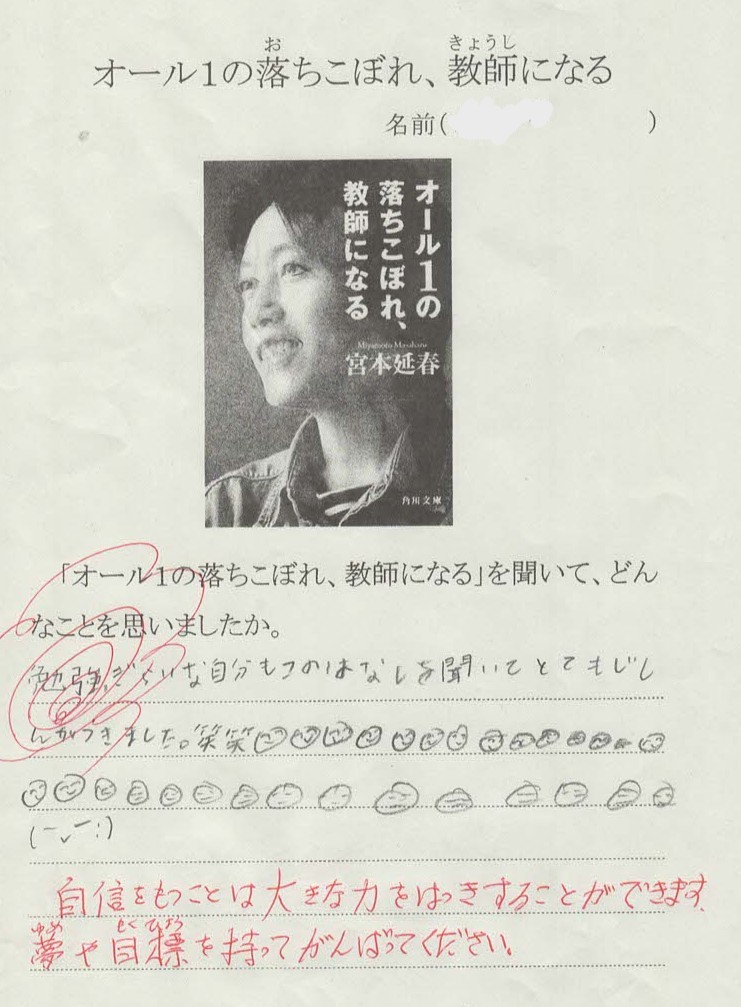 お きょうし
オール1の落ちこぼれ、教師になる
名前( )
オール1の
落ちこぼれ、
教師になる
Miyamoto Masaharu
宮本延春
角川文庫
「オール1の落ちこぼれ、教師になる」を聞いて、どん
なことを思いましたか。
勉強ぎらいな自分もこのはなしを聞いてとてもじし
んがつきました。笑笑
自信をもつことは大きな力をはっきすることができます。
ゆめ もくひょう
夢や目標を持ってがんばってください。